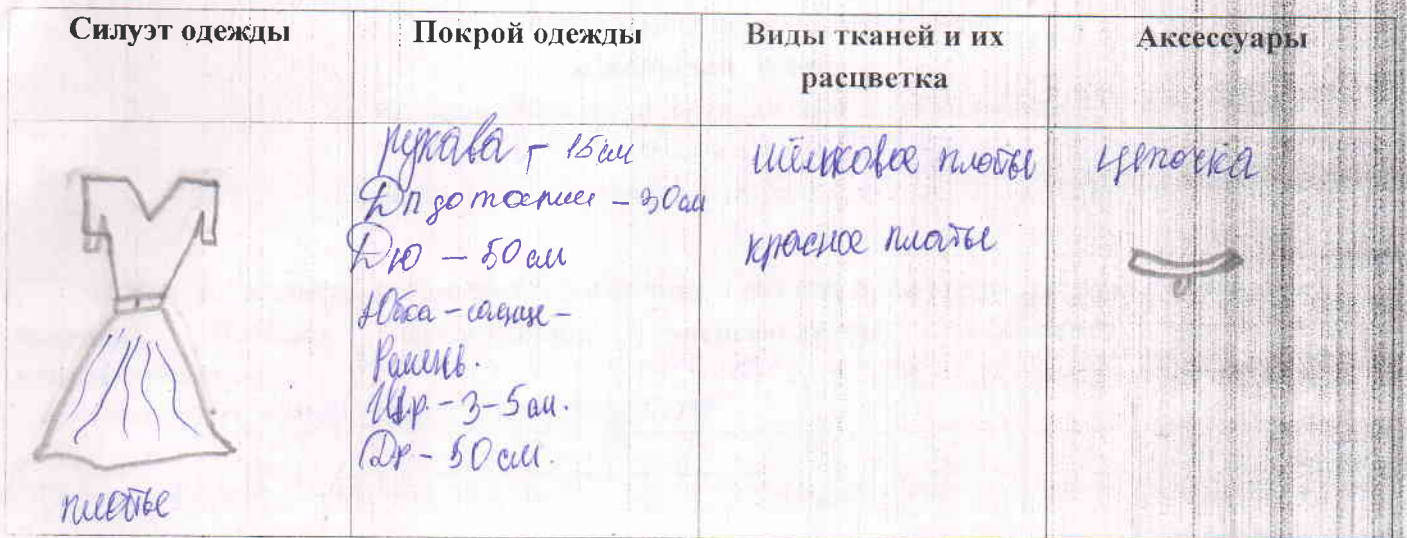 Силуэт одежды
Покрой одежды
Виды тканей и их
расцветка
Аксессуары
платье
рукава - 15 см
Дп до талии - 30 см
Дю - 50 см
Юбка - солнце -
Шр. - 3-5 см.
Др - 50 см.
шёлковое платье
красное платье
цепочка